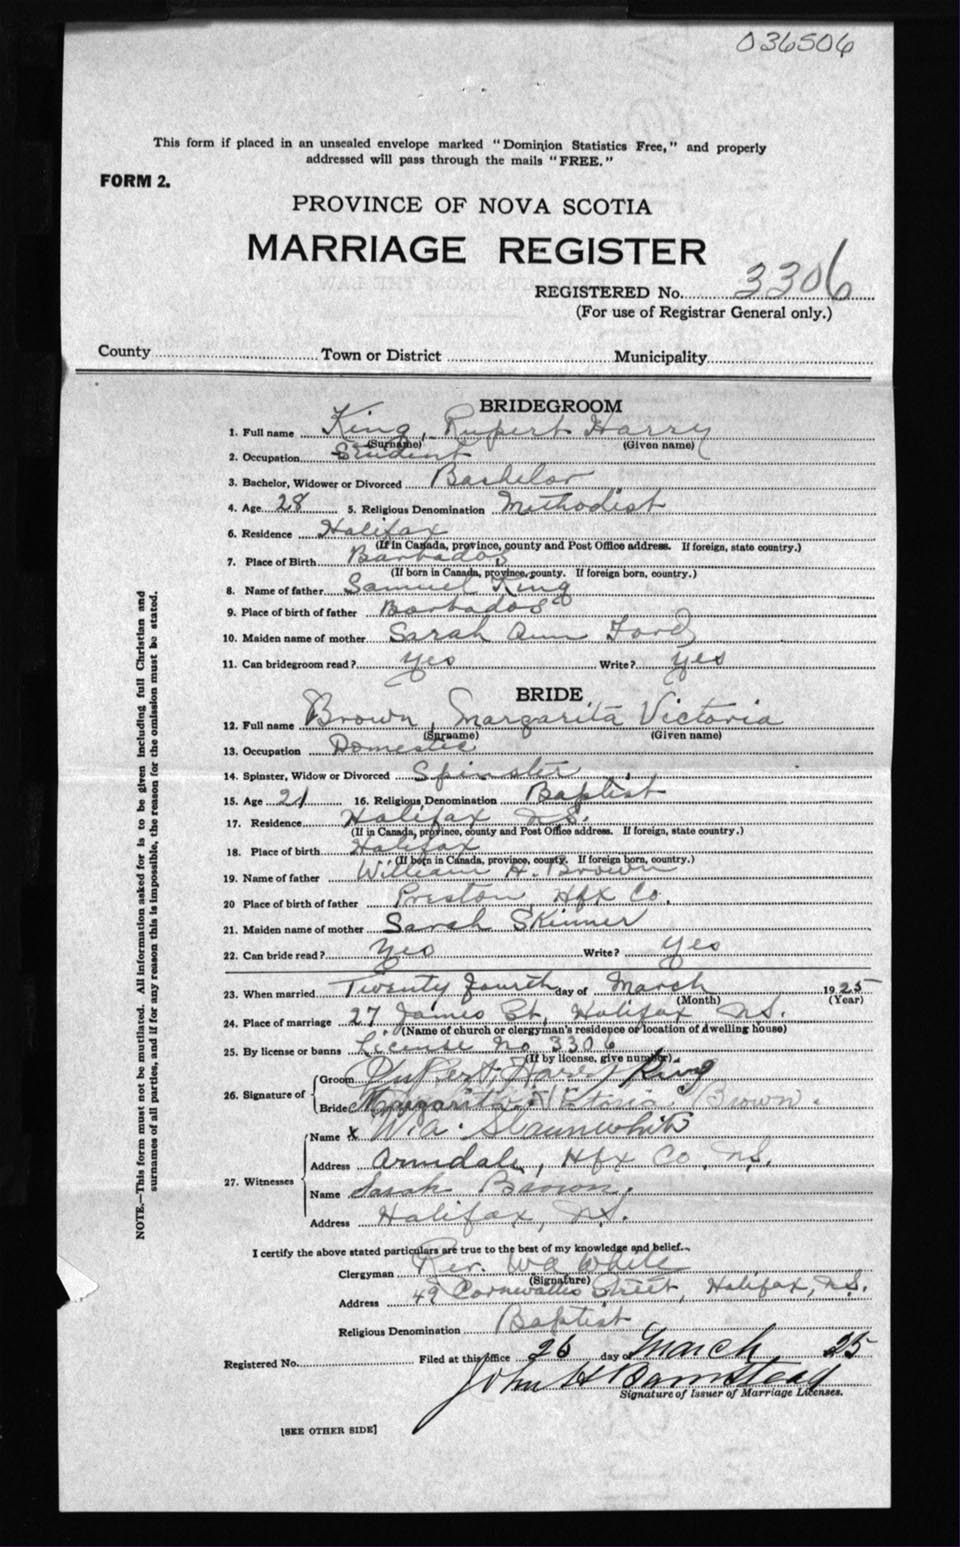 036506
This form if placed in an unsealed envelope marked "Dominion Statistics Free," and properly
addressed will pass through the mails "FREE."
FORM 2.
PROVINCE OF NOVA SCOTIA
MARRIAGE REGISTER
REGISTERED No. 3306
(For use of Registrar General only.)
County Town or District Municipality
BRIDEGROOM
1. Full name King, Rupert Harry
(Surname) (Given name)
2. Occupation Student
3. Bachelor, Widower or Divorced Bachelor
4. Age 28 5. Religious Denomination Methodist
6. Residence Halifax
(If in Canada, province, county and Post Office address. If foreign, state country.)
7. Place of Birth Barbados
(If born in Canada, province, county. If foreign born, country.)
8. Name of father Samuel King
9. Place of birth of father Barbados
10. Maiden name of mother Sarah Ann Ford
11. Can bridegroom read? yes Write? yes
BRIDE
12. Full name Brown, Margarita Victoria
(Surname) (Given name)
13. Occupation Domestic
14. Spinster, Widow or Divorced Spinster
15. Age 21 16. Religious Denomination Baptist
17. Residence Halifax N.S.
(If in Canada, province, county and Post Office address. If foreign, state country.)
18. Place of birth Halifax
(If born in Canada, province, county. If foreign born, country.)
19. Name of father William H. Brown
20 Place of birth of father Preston, Hfx Co.
21. Maiden name of mother Sarah Skinner
22. Can bride read? Yes Write? yes
23. When married Twenty fourth day of March 1925
(Month) (Year)
24. Place of marriage 27 James St, Halifax N.S.
(Name of church or clergyman's residence or location of dwelling house)
25. By license or banns License No 3306
(If by license, give number)
26. Signature of
Groom Rupert Harry King
Bride Margarita Victoria Brown.
27. Witnesses
Name x W.A. Slaunwhite
Address Armdale, Hfx Co, N.S.
Name Sarah Brown,
Address Halifax, N.S.
I certify the above stated particulars are true to the best of my knowledge and belief.
Clergyman Rev. W A White
(Signature)
Address 49 Cornwallis Street, Halifax, N.S.
Religious Denomination Baptist
Registered No. Filed at this office 26 day of March 25
John H Barnstead
Signature of Issuer of Marriage Licenses.
[SEE OTHER SIDE]
NOTE.—This form must not be mutilated. All information asked for is to be given including full Christian and
surnames of all parties, and if for any reason this is impossible, the reason for the omission must be stated.